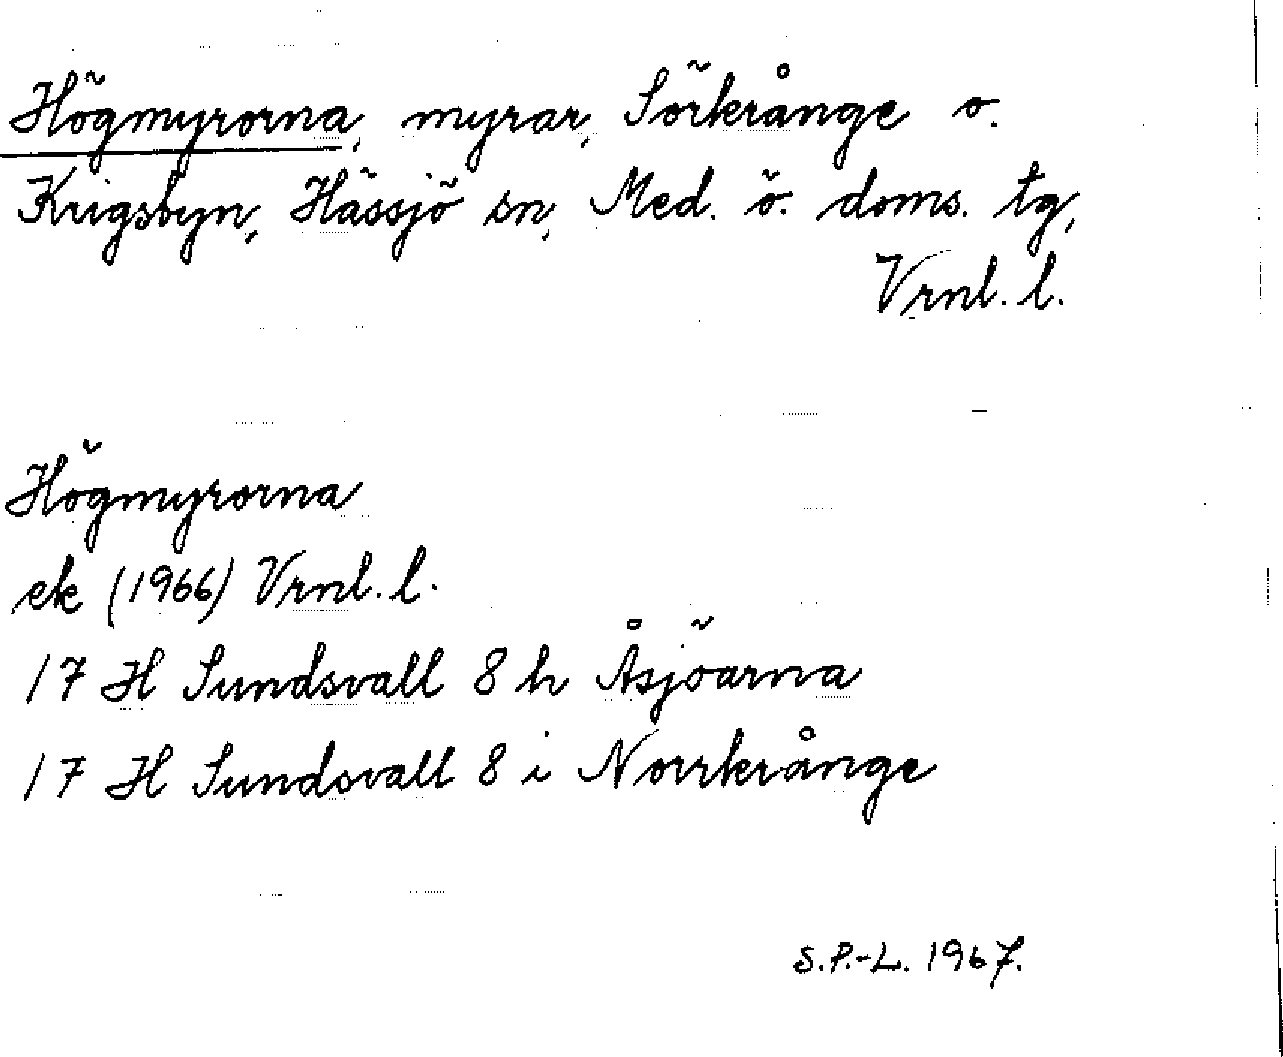 Högmyrorna, myrar, Sörkrånge o.
Krigsbyn, Hässjö sn, Med. ö. doms. tg,
Vrnl. l.
Högmyrorna
ek (1966) Vrnl. l.
17 H Sundsvall 8 h Åsjöarna
17 H Sundsvall 8 i Norrkrånge
S.P.-L. 1967.